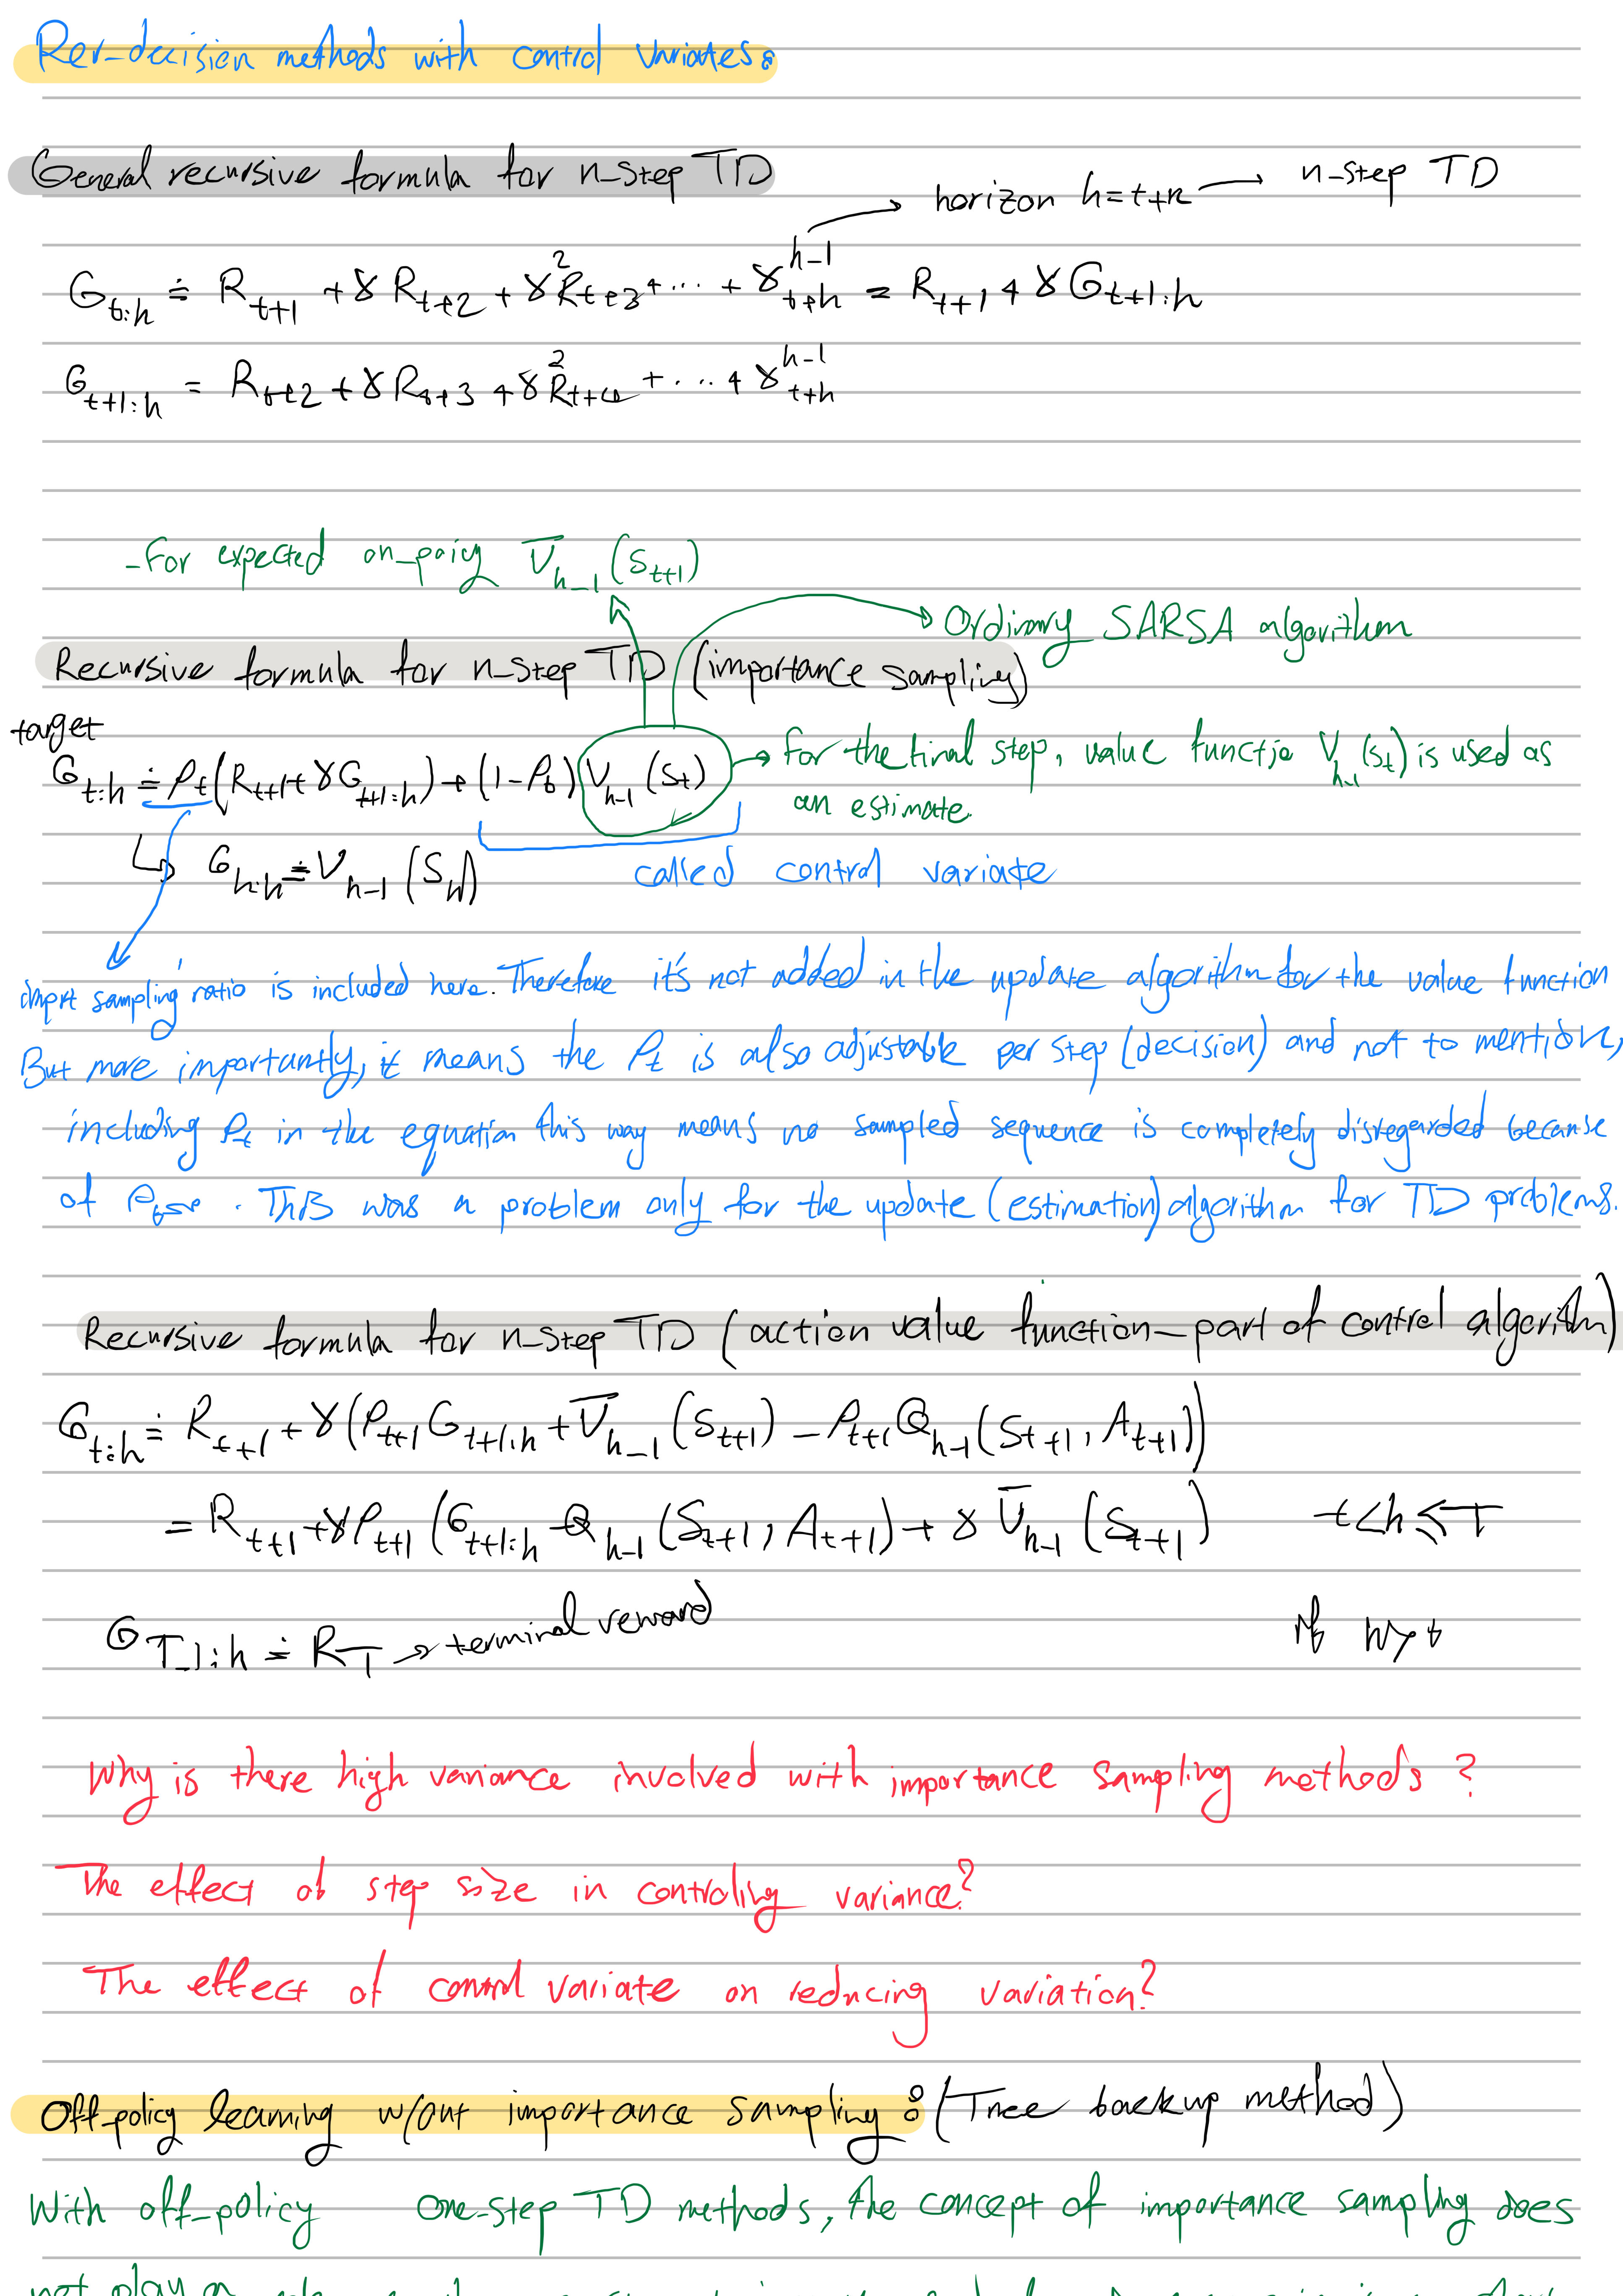 Per-decision methods with control variates:
General recursive formula for n-step TD
horizon h=t+n → n-step TD
G_{t:h} ≐ R_{t+1} + γR_{t+2} + γ²R_{t+3} + ... + γ^{h-1}_{t+h} = R_{t+1} + γG_{t+1:h}
G_{t+1:h} = R_{t+2} + γR_{t+3} + γ²R_{t+4} + ... + γ^{h-1}_{t+h}
- For expected on-policy V̄_{h-1}(S_{t+1})
Ordinary SARSA algorithm
Recursive formula for n-step TD (importance sampling)
target
G_{t:h} ≐ ρ_t(R_{t+1} + γG_{t+1:h}) + (1-ρ_t)V_{h-1}(S_t) → for the final step, value functio V_{h-1}(S_t) is used as
an estimate.
G_{h:h} ≐ V_{h-1}(S_h)
called control variate
import sampling ratio is included here. Therefore it's not added in the update algorithm for the value function
But more importantly, it means the ρ_t is also adjustable per step (decision) and not to mention,
including ρ_t in the equation this way means no sampled sequence is completely disregarded because
of . This was a problem only for the update (estimation) algorithm for TD problems.
Recursive formula for n-step TD (action value function - part of control algorithm)
G_{t:h} ≐ R_{t+1} + γ(ρ_{t+1}G_{t+1:h} + V̄_{h-1}(S_{t+1}) - ρ_{t+1}Q_{h-1}(S_{t+1}, A_{t+1}))
= R_{t+1} + γρ_{t+1}(G_{t+1:h} - Q_{h-1}(S_{t+1}, A_{t+1}) + γV̄_{h-1}(S_{t+1}) t<h≤T
G_{T-1:h} ≐ R_T → terminal reward if h>t
Why is there high variance involved with importance sampling methods?
The effect of step size in controling variance?
The effect of control variate on reducing variation?
Off-policy learning w/out importance sampling: (Tree backup method)
With off-policy one-step TD methods, the concept of importance sampling does
not play a